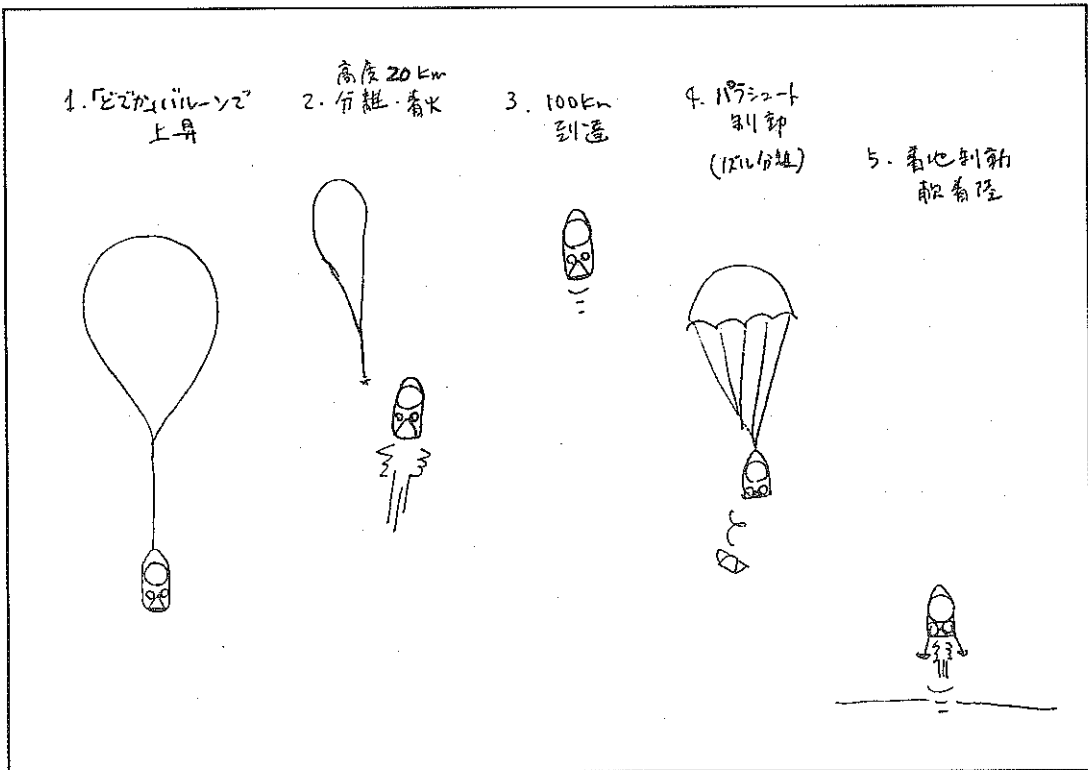 1.「どでか」バルーンで
上昇
高度20km
2. 分離・着火
3. 100km
到達
4. パラシュート
制動
(ノズル分離)
5. 着地制動
軟着陸